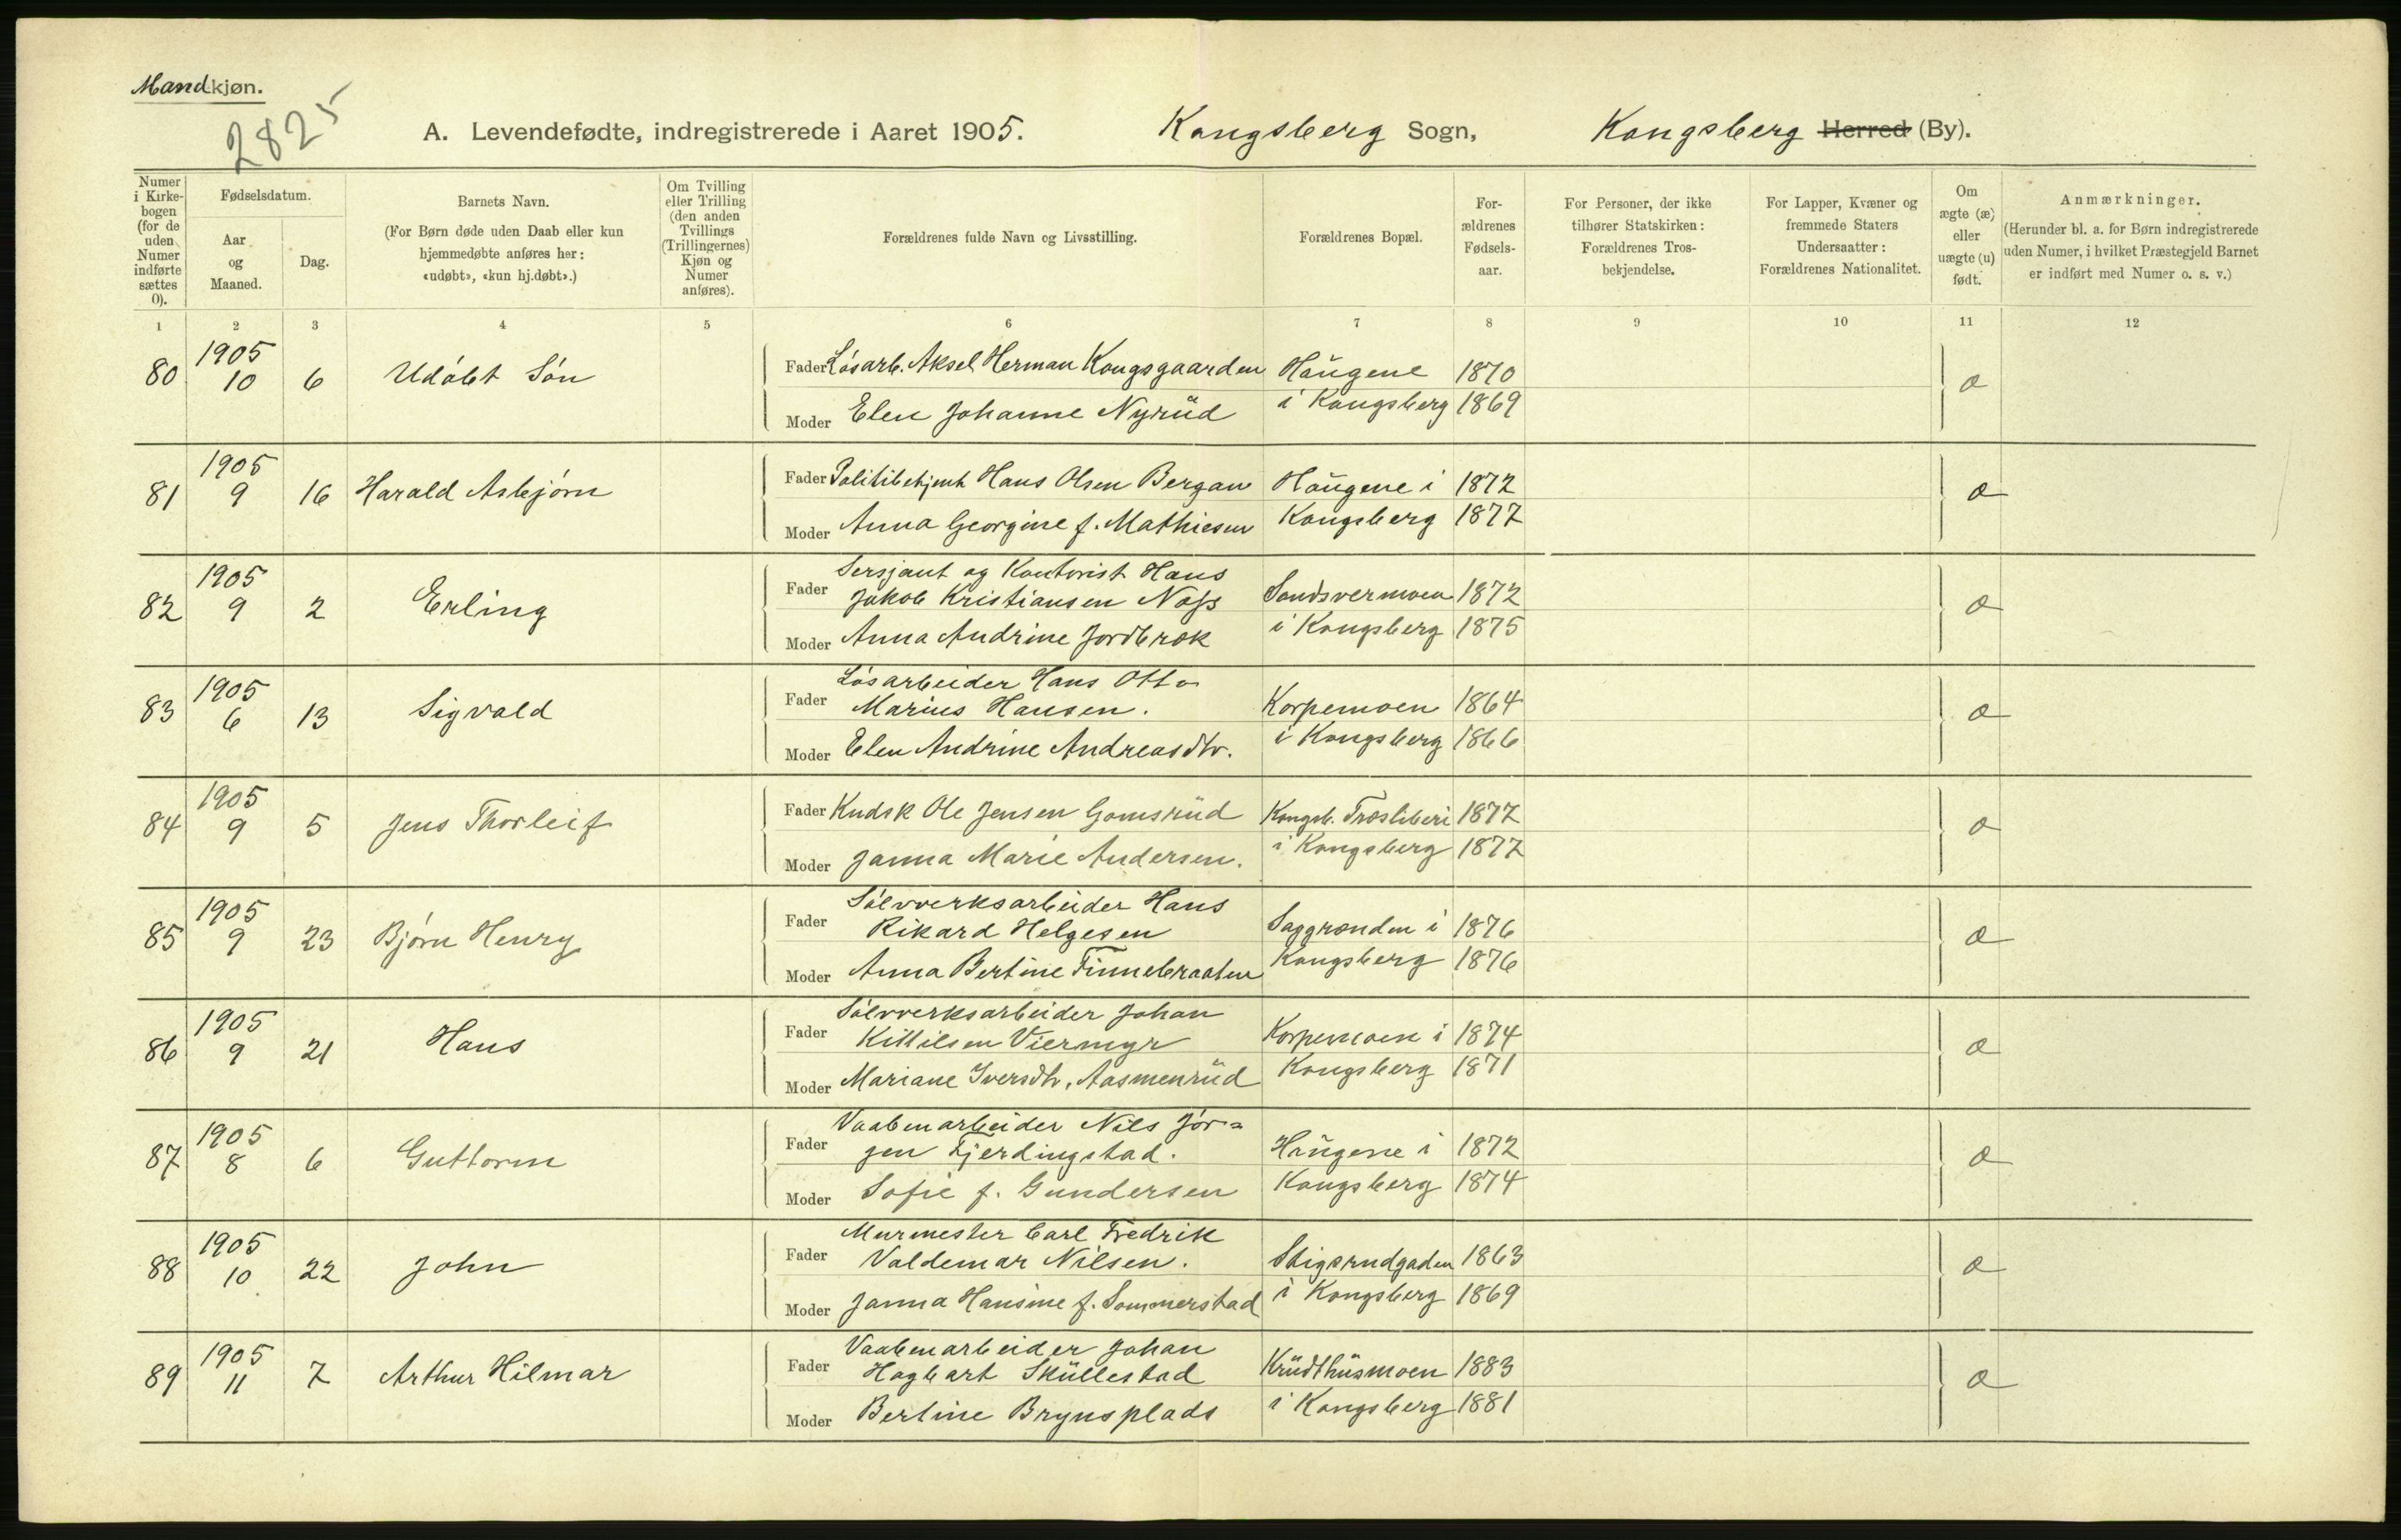 Mandkjøn.
2825
A. Levendefødte, indregistrerede i Aaret 1905. Kongsberg Sogn, Kongsberg Herred (By).
Numer i Kirkebogen (for de uden Numer indførte sættes 0).
Fødselsdatum.
Aar og Maaned.
Dag.
Barnets Navn.
(For Børn døde uden Daab eller kun hjemmedøbte anføres her: «udøbt», «kun hj.døbt».)
Om Tvilling eller Trilling (den anden Tvillings (Trillingernes) Kjøn og Numer anføres).
Forældrenes fulde Navn og Livsstilling.
Forældrenes Bopæl.
Forældrenes Fødselsaar.
For Personer, der ikke tilhører Statskirken: Forældrenes Trosbekjendelse.
For Lapper, Kvæner og fremmede Staters Undersaatter: Forældrenes Nationalitet.
Om ægte (æ) eller uægte (u) født.
Anmærkninger.
(Herunder bl. a. for Børn indregistrerede uden Numer, i hvilket Præstegjeld Barnet er indført med Numer o. s. v.)
1 2 3 4 5 6 7 8 9 10 11 12
80 1905 10 6 Udöbt Sön
Fader Lösarb. Aksel Herman Kongsgaarden Haŭgene 1870 æ
Moder Elen Johanne Nyrŭd i Kongsberg 1869
81 1905 9 16 Harald Asbjörn
Fader Politibetjent Hans Olsen Bergan Haŭgene i 1872 æ
Moder Anna Georgine f. Mathiesen Kongsberg 1877
82 1905 9 2 Erling
Fader Sersjant og Kontorist Hans
Jakob Kristiansen Næss Sandsvermoen 1872 æ
Moder Anna Andrine Jordbræk i Kongsberg 1875
83 1905 6 13 Sigvald
Fader Lösarbeider Hans Otto
Marius Hansen. Korpemoen 1864 æ
Moder Elen Andrine Andreasdtr. i Kongsberg 1866
84 1905 9 5 Jens Thorleif
Fader Kudsk Ole Jensen Gomsrŭd Kongsb. Træsliberi 1877 æ
Moder Janna Marie Andersen. i Kongsberg 1877
85 1905 9 23 Björn Henry
Fader Sölvverksarbeider Hans
Rikard Helgesen Saggrenden i 1876 æ
Moder Anna Bertine Finnebraaten Kongsberg 1876
86 1905 9 21 Hans
Fader Sölvverksarbeider Johan
Kittilsen Viermyr Korpemoen i 1874 æ
Moder Mariane Iversdtr. Aasmenrŭd Kongsberg 1871
87 1905 8 6 Guttorm
Fader Vaabenarbeider Nils Jör=
gen Fjerdingstad. Haŭgene i 1872 æ
Moder Sofie f. Gundersen Kongsberg 1874
88 1905 10 22 John
Fader Murmester Carl Fredrik
Valdemar Nilsen. Stigsrudgaden 1863 æ
Moder Janna Hansine f. Sommerstad i Kongsberg 1869
89 1905 11 7 Arthur Hilmar
Fader Vaabenarbeider Johan
Hagbart Skŭllestad Krŭdthŭsmoen 1883 æ
Moder Bertine Brynsplads i Kongsberg 1881